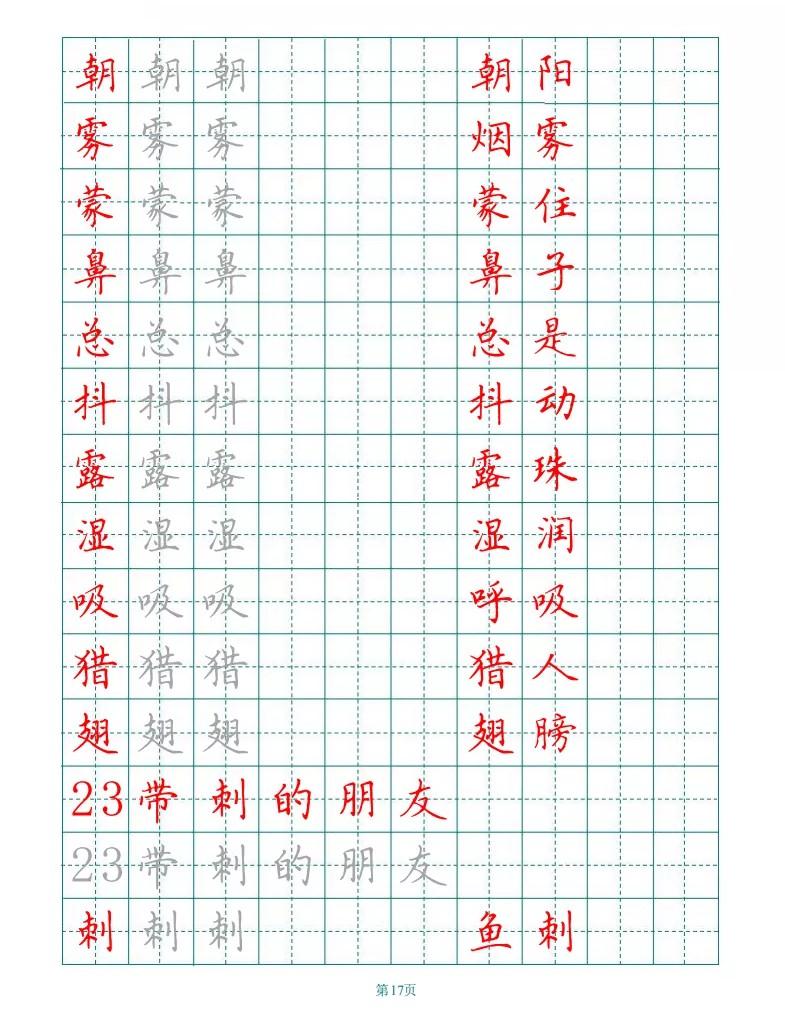 朝朝朝 朝阳
雾雾雾 烟雾
蒙蒙蒙 蒙住
鼻鼻鼻 鼻子
总总总 总是
抖抖抖 抖动
露露露 露珠
湿湿湿 湿润
吸吸吸 呼吸
猎猎猎 猎人
翅翅翅 翅膀
23带刺的朋友
23带刺的朋友
刺刺刺 鱼刺
第17页